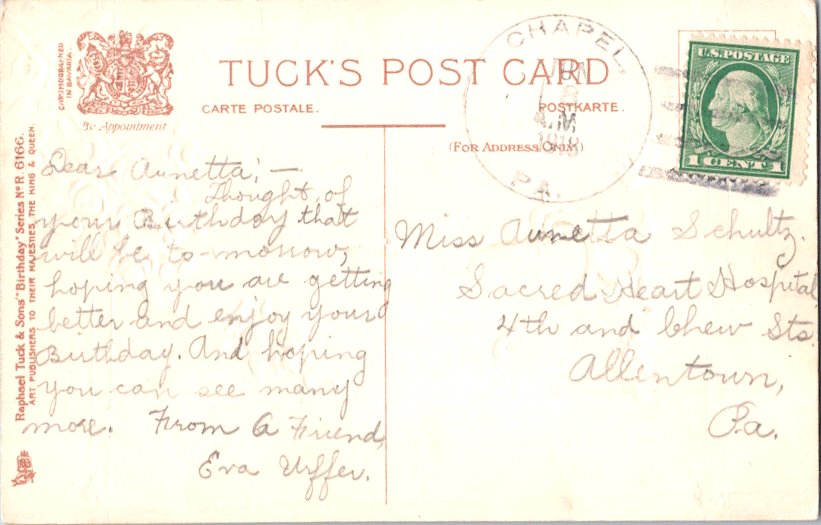 CHROMOGRAPHED
IN BAVARIA.
By Appointment
TUCK'S POST CARD
CARTE POSTALE.
POSTKARTE.
(FOR ADDRESS ONLY)
CHAPEL,
A.M.
PA.
U.S. POSTAGE
1 CENT 1
Raphael Tuck & Sons' "Birthday" Series No R. 6166.
ART PUBLISHERS TO THEIR MAJESTIES THE KING & QUEEN.
Dear Aunetta; —
Thought of
your Birthday that
will be to-morrow,
hoping you are getting
better and enjoy your
Birthday. And hoping
you can see many
more. From A Friend,
Eva Urffer.
Miss Aunetta Schultz.
Sacred Heart Hospital
4th and Chew Sts.
Allentown,
Pa.